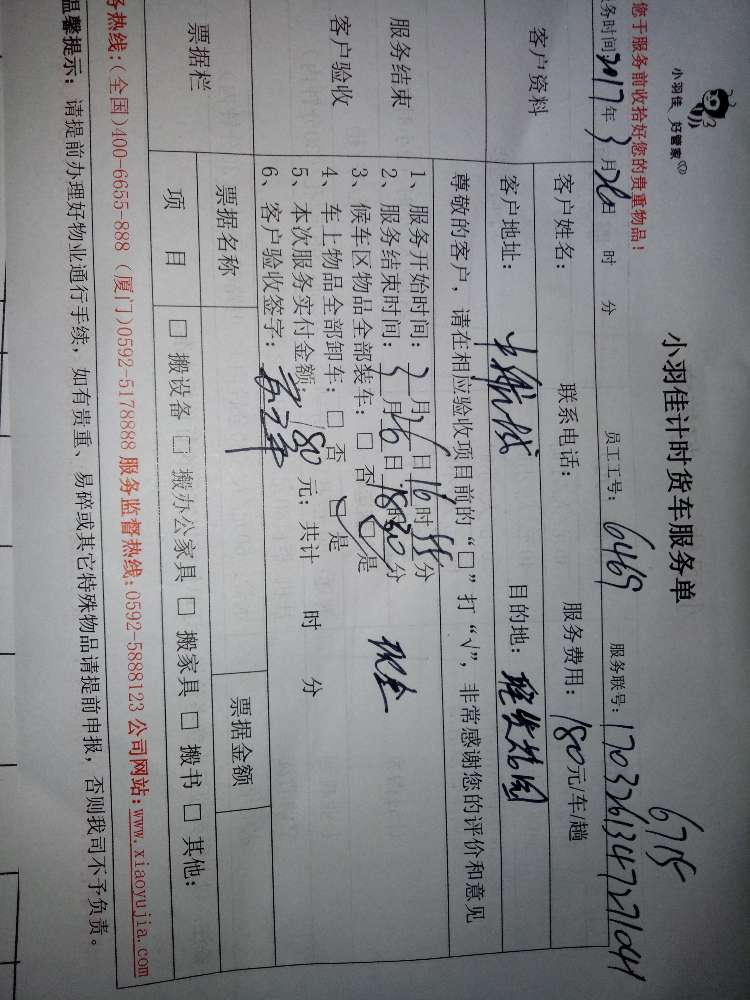 小羽佳 好管家
小羽佳计时货车服务单
6715
您于服务前收拾好您的贵重物品!
务时间2017年3月26日 时 分 员工工号: 6469 服务联号:
客户资料
客户姓名: 联系电话: 服务费用: 180元/车/趟
客户地址: 目的地:
服务结束
客户验收
尊敬的客户, 请在相应验收项目前的“□”打“√”, 非常感谢您的评价和意见
1、服务开始时间: 3月26日16时55分
2、服务结束时间: 3月26日18时30分 现金
3、候车区物品全部装车: □ 否 ☑ 是
4、车上物品全部卸车: □ 否 ☑ 是
5、本次服务实付金额: 180 元; 共计 时 分
6、客户验收签字:
票据栏
票据名称 票据金额
项 目 □ 搬设备 □ 搬办公家具 □ 搬家具 □ 搬书 □ 其他:
务热线:(全国)400-6655-888 (厦门)0592-5178888 服务监督热线:0592-5888123 公司网站:www.xiaoyujia.com
温馨提示: 请提前办理好物业通行手续, 如有贵重、易碎或其它特殊物品请提前申报, 否则我司不予负责。